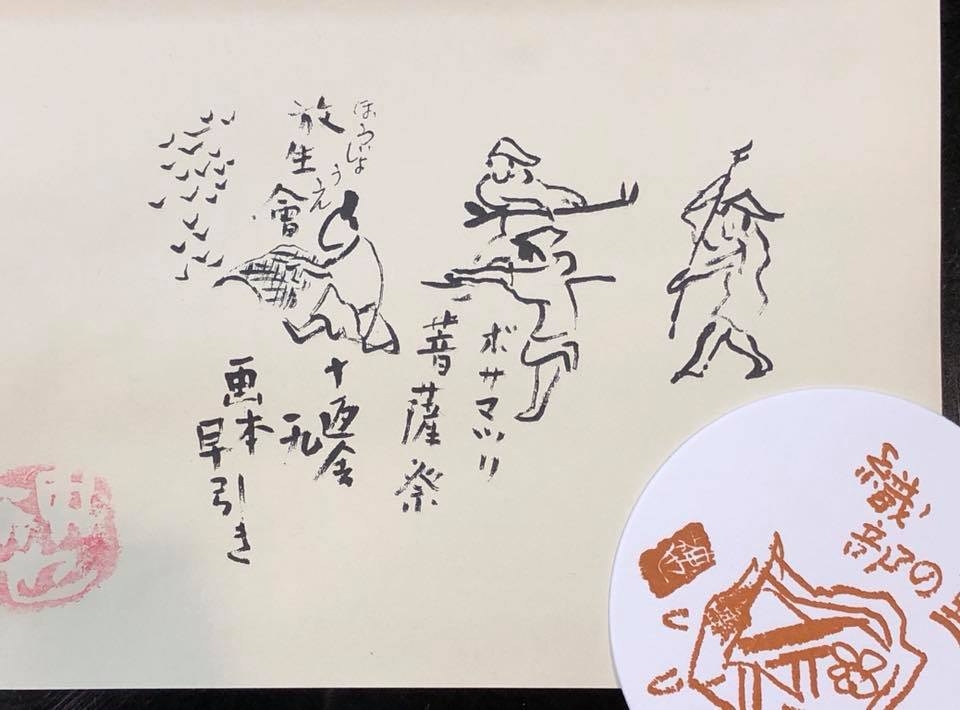 ボサマツリ
菩薩祭
ほうじょうえ
放生會
十返舎
一九
画本
早引き
織部の